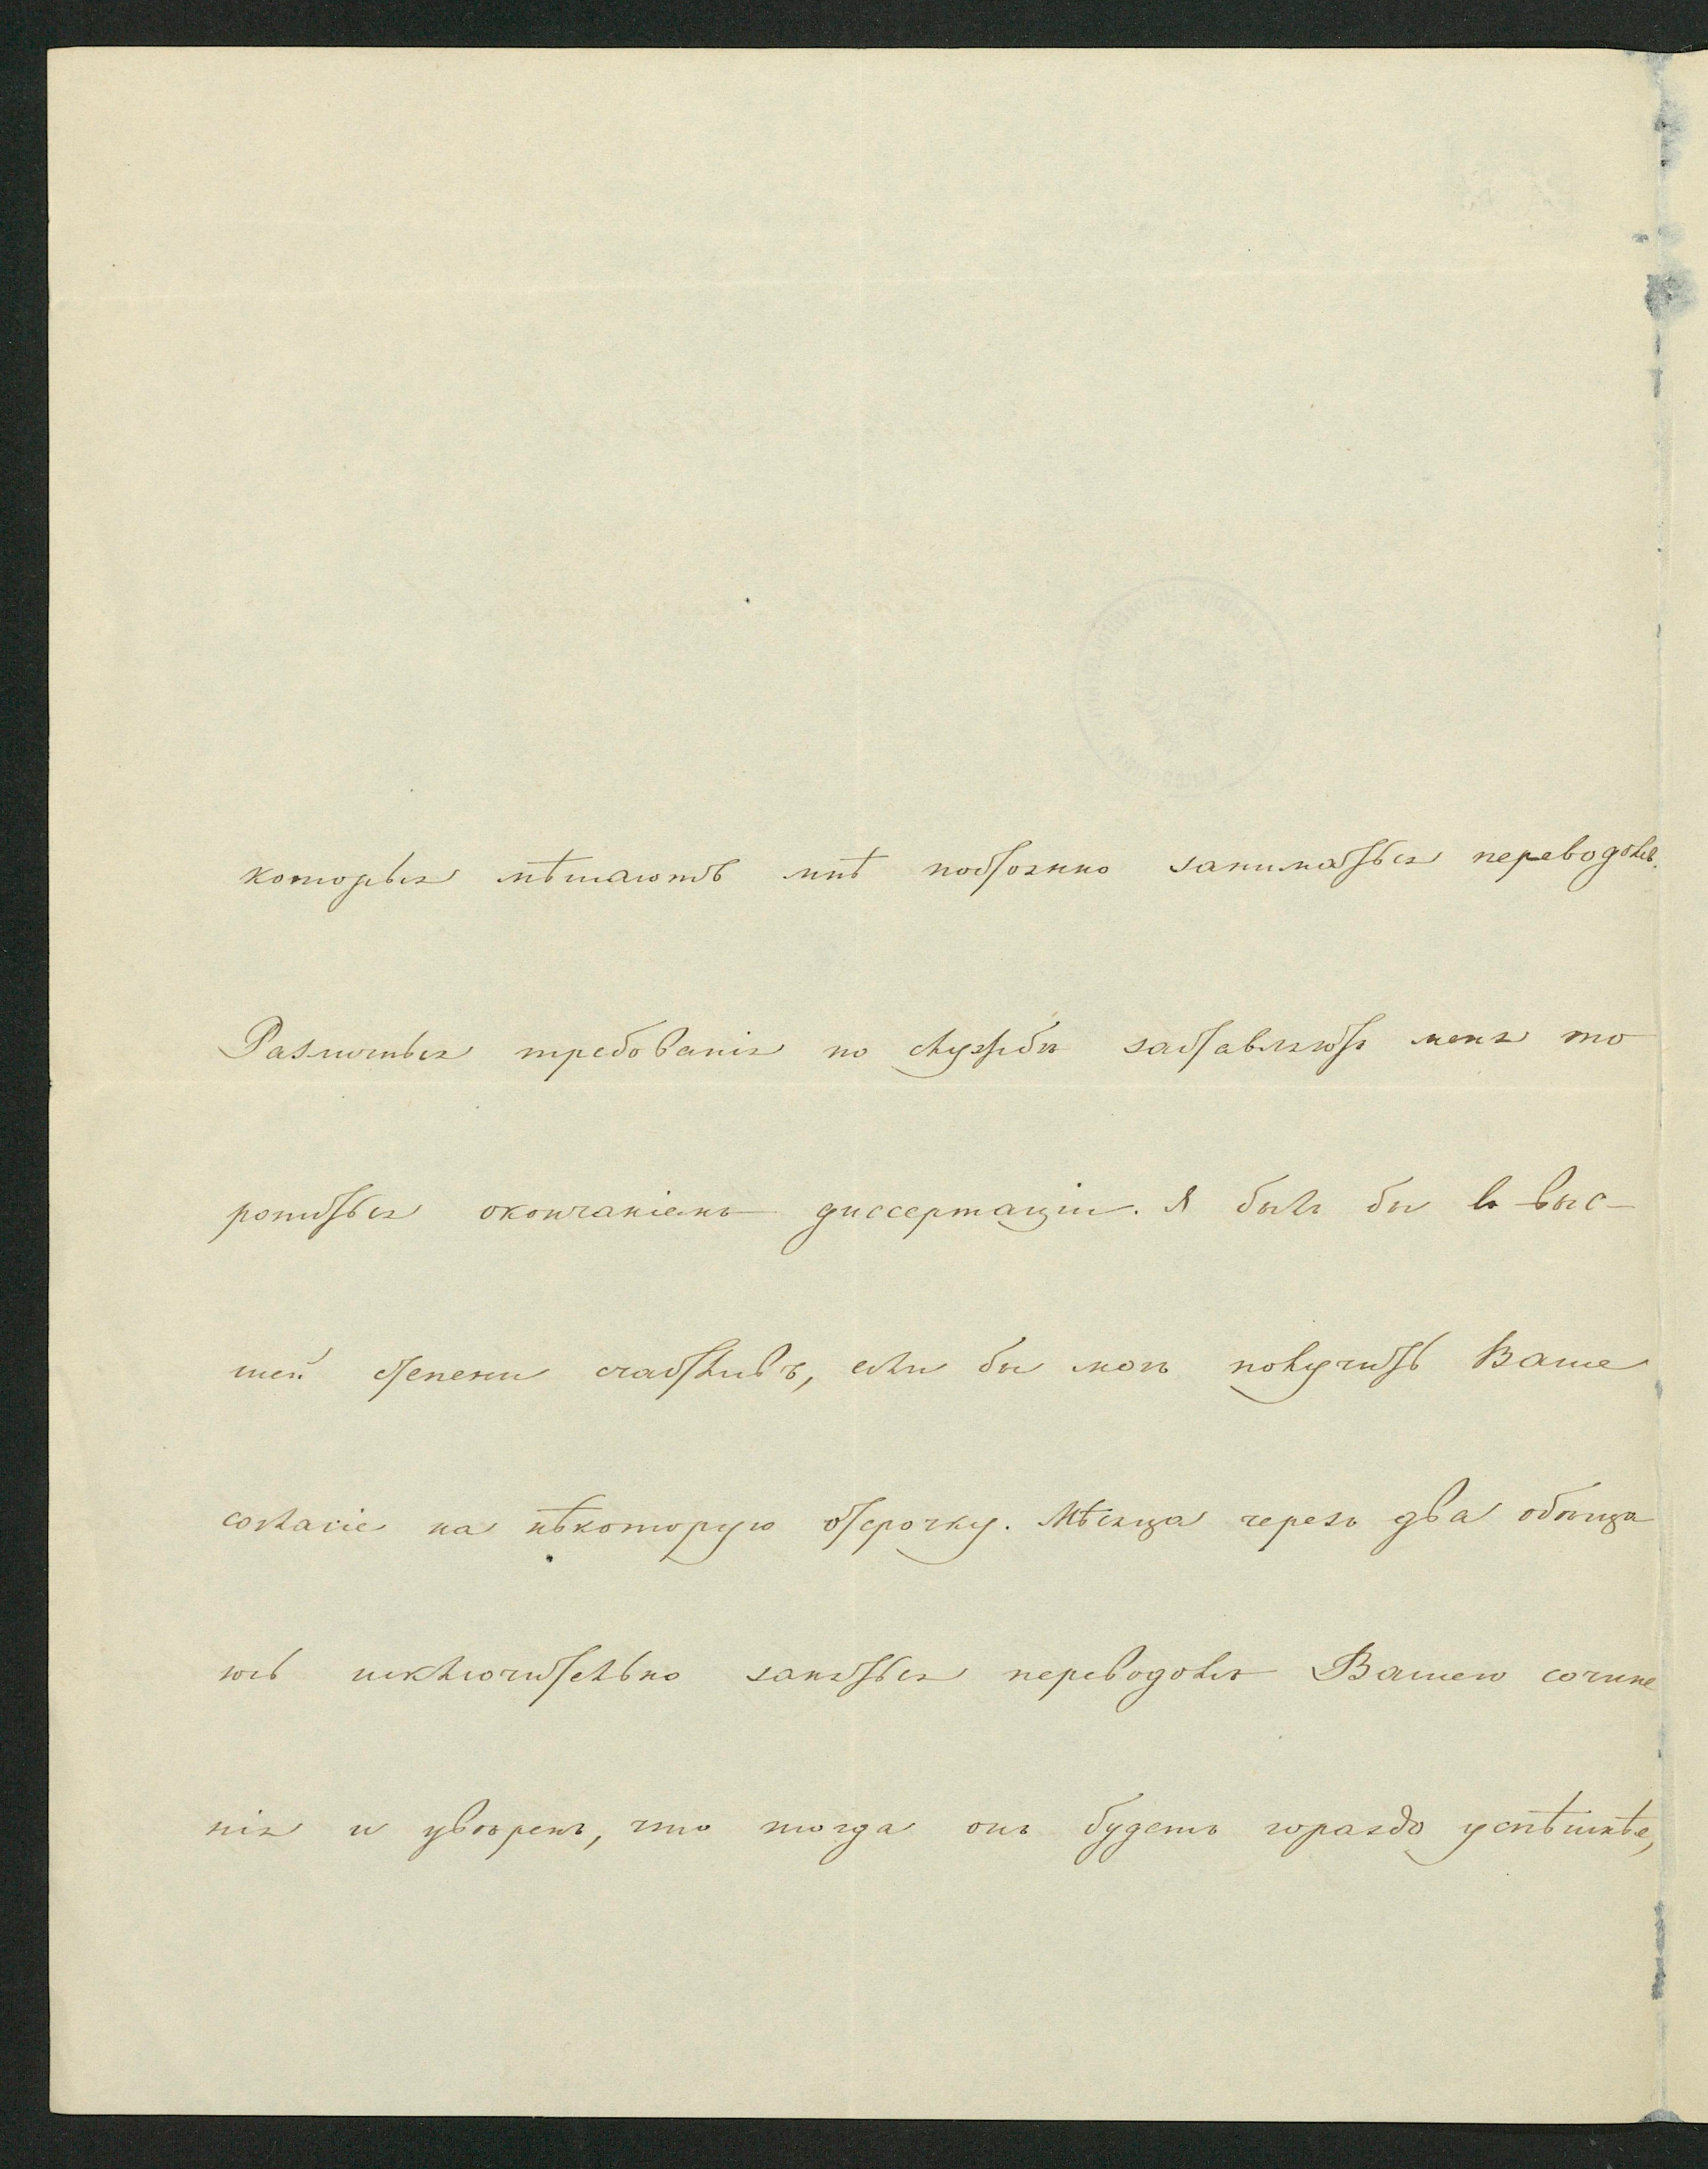 которыя мѣшаютъ мнѣ постоянно заниматься переводомъ.
Различныя требованія по службѣ заставляютъ меня то
ропиться окончаніемъ диссертаціи. Я былъ бы въ выс-
шей степени счастливъ, если бы могъ получить Ваше
согласіе на нѣкоторую отсрочку. Мѣсяца черезъ два обѣща
юсь исключительно заняться переводомъ Вашего сочине
нія и увѣренъ, что тогда онъ будетъ гораздо успѣшнѣе,